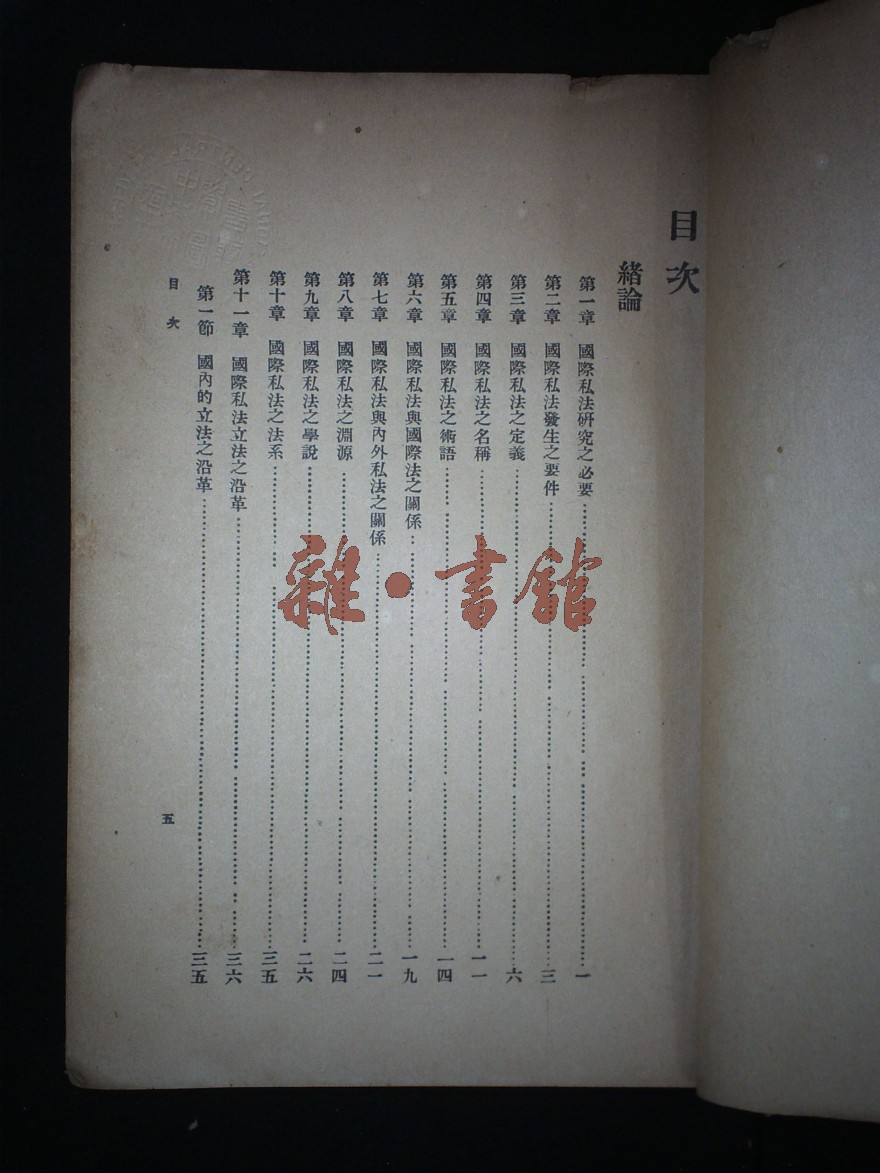 目次
緒論
第一章 國際私法研究之必要……一
第二章 國際私法發生之要件……三
第三章 國際私法之定義……六
第四章 國際私法之名稱……一一
第五章 國際私法之術語……一四
第六章 國際私法與國際法之關係……一九
第七章 國際私法與內外私法之關係……二一
第八章 國際私法之淵源……二四
第九章 國際私法之學說……二六
第十章 國際私法之法系……三五
第十一章 國際私法立法之沿革……三六
第一節 國內的立法之沿革……三五
目次
五
雜·書館